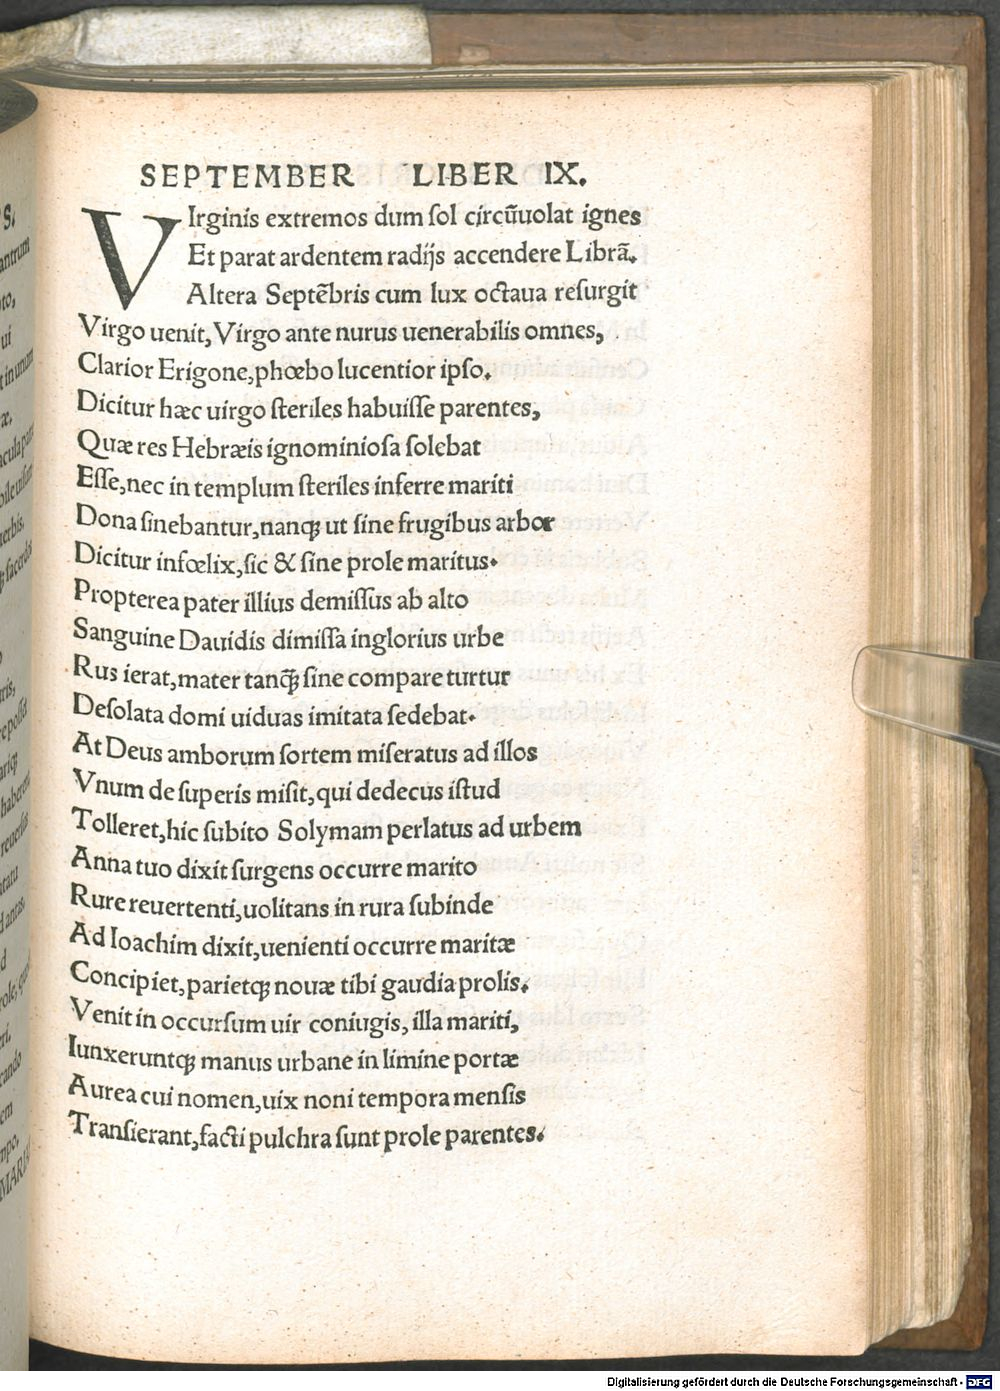 SEPTEMBER LIBER IX.
VIrginis extremos dum ſol circũuolat ignes
Et parat ardentem radijs accendere Librã.
Altera Septẽbris cum lux octaua reſurgit
Virgo uenit, Virgo ante nurus uenerabilis omnes,
Clarior Erigone, phœbo lucentior ipſo.
Dicitur hæc uirgo ſteriles habuiſſe parentes,
Quæ res Hebræis ignominioſa ſolebat
Eſſe, nec in templum ſteriles inferre mariti
Dona ſinebantur, nanqꝫ ut ſine frugibus arbor
Dicitur infœlix, ſic & ſine prole maritus.
Propterea pater illius demiſſus ab alto
Sanguine Dauidis dimiſſa inglorius urbe
Rus ierat, mater tanqꝫ̃ ſine compare turtur
Deſolata domi uiduas imitata ſedebat.
At Deus amborum ſortem miſeratus ad illos
Vnum de ſuperis miſit, qui dedecus iſtud
Tolleret, hic ſubito Solymam perlatus ad urbem
Anna tuo dixit ſurgens occurre marito
Rure reuertenti, uolitans in rura ſubinde
Ad Ioachim dixit, uenienti occurre maritæ
Concipiet, parietqꝫ nouæ tibi gaudia prolis.
Venit in occurſum uir coniugis, illa mariti,
Iunxeruntqꝫ manus urbane in limine portæ
Aurea cui nomen, uix noni tempora menſis
Tranſierant, facti pulchra ſunt prole parentes.
Digitalisierung gefördert durch die Deutsche Forschungsgemeinschaft - DFG